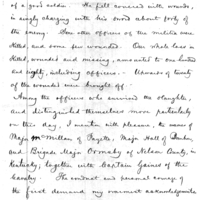 of a good soldier. He fell covered with wounds,
in singly charging with his sword about forty of
the enemy. Two other officers of the militia were
killed, and some few wounded. Our whole loss in
killed, wounded and missing, amounted to one hundred
and eighty, including officers. Upwards of twenty
of the wounded were brought off.
Among the officers who survived the slaughter,
and distinguished themselves more particularly
on this day, I mention with pleasure, the names of
Major McMillan of Fayette, Major Hall of
And Brigade Major Ormsby of Nelson County, in
Kentucky, together with Captain Gaines of the
Cavalry. The conduct and personal energy of
the first demand my warmest acknowledgments